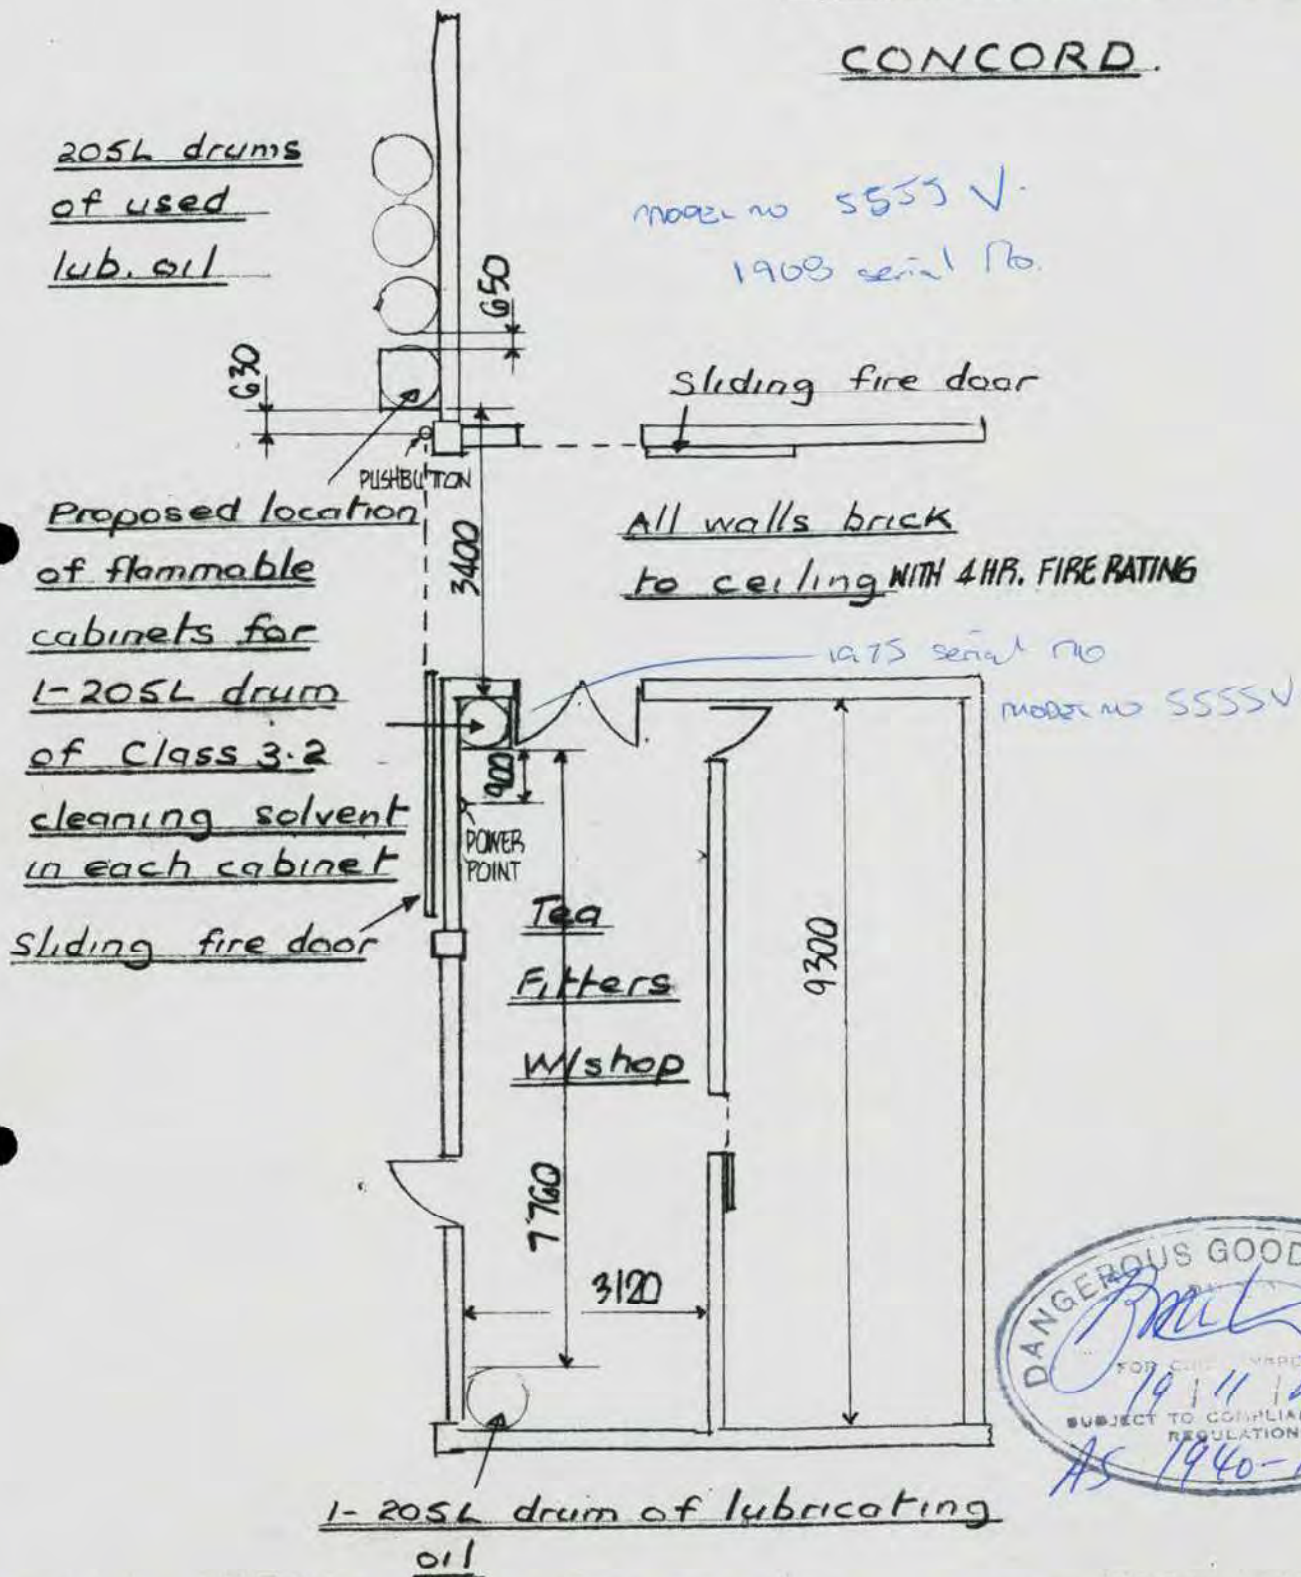 CONCORD.
205L drums
of used
lub. oil
model no 5555 V.
1908 serial No.
650
630
Sliding fire door
PUSHBUTTON
Proposed location
of flammable
cabinets for
1-205L drum
of Class 3.2
cleaning solvent
in each cabinet
3400
All walls brick
to ceiling WITH 4 HR. FIRE RATING
1975 serial no
model no 5555V
900
POWER
POINT
Sliding fire door
Tea
Fitters
W/shop
9300
7760
3120
DANGEROUS GOOD
FOR
19 / 11 /
SUBJECT TO COMPLIA
REGULATION
AS 1940-
1-205L drum of lubricating
oil